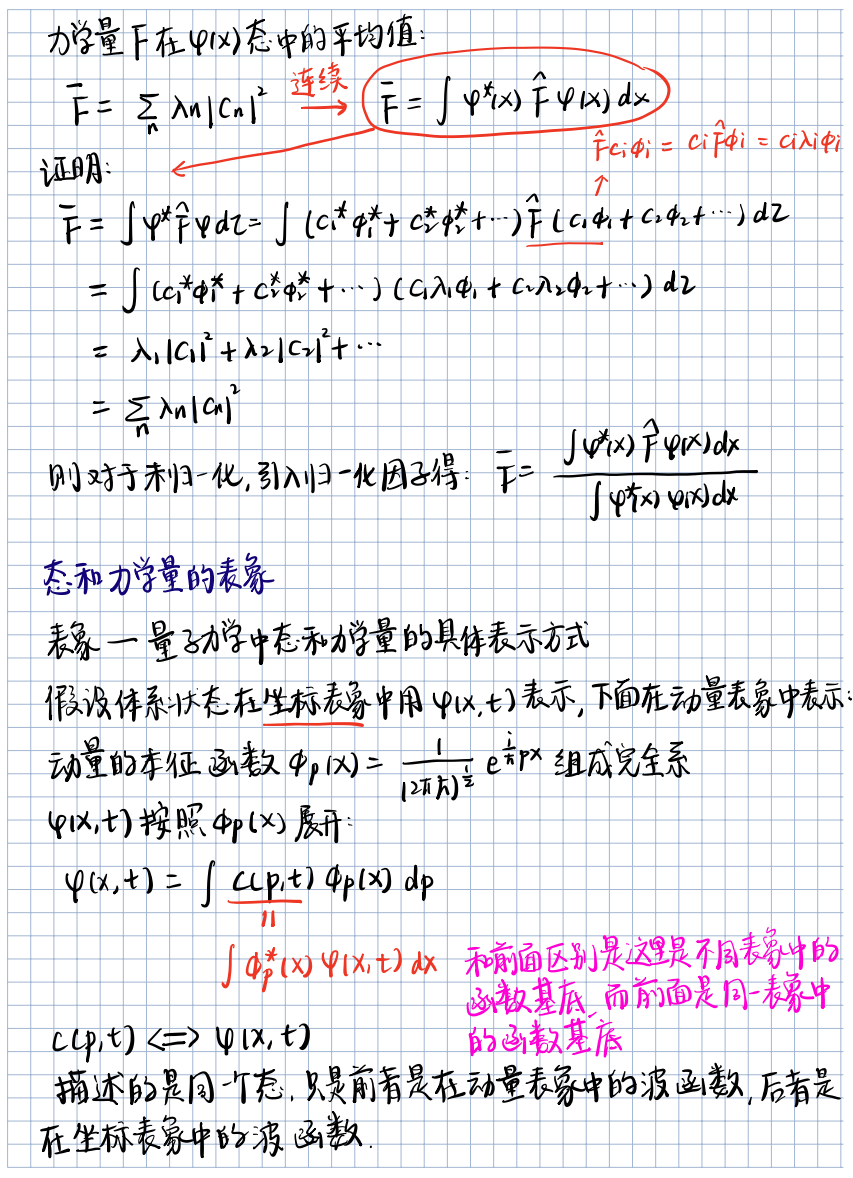 力学量F在ψ(x)态中的平均值:
F̄ = Σₙ λn|Cn|² 连续→ F̄ = ∫ψ*(x) F̂ ψ(x) dx
F̂c₁φ₁ = c₁F̂φ₁ = c₁λ₁φ₁
证明:
F̄ = ∫ψ*F̂ψdτ = ∫(c₁*φ₁* + c₂*φ₂* + ⋯) F̂ (c₁φ₁ + c₂φ₂ + ⋯) dτ
= ∫(c₁*φ₁* + c₂*φ₂* + ⋯) (c₁λ₁φ₁ + c₂λ₂φ₂ + ⋯) dτ
= λ₁|C₁|² + λ₂|C₂|² + ⋯
= Σₙ λn|Cn|²
则对于未归一化,引入归一化因子得: F̄ = ∫ψ*(x) F̂ ψ(x)dx / ∫ψ*(x) ψ(x)dx
态和力学量的表象
表象 — 量子力学中态和力学量的具体表示方式
假设体系状态在坐标表象中用 ψ(x,t) 表示,下面在动量表象中表示:
动量的本征函数 φp(x) = 1/(2πħ)^(1/2) e^(i/ħ px) 组成完全系
ψ(x,t) 按照 φp(x) 展开:
ψ(x,t) = ∫ c(p,t) φp(x) dp
=
∫ φp*(x) ψ(x,t) dx
和前面区别是这里是不同表象中的
函数基底,而前面是同一表象中
的函数基底
c(p,t) <=> ψ(x,t)
描述的是同一个态,只是前者是在动量表象中的波函数,后者是
在坐标表象中的波函数.